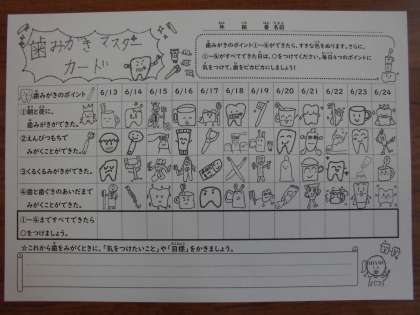 歯みがきマスター
カード
年 組 番 名前
歯みがきのポイント①〜④ができたら、すきな色をぬります。さらに、
①〜④がすべてできた日は、○をつけてください。毎日4つのポイントに
気をつけて、歯をピカピカにしましょう!
歯みがきのポイント 6/13 6/14 6/15 6/16 6/17 6/18 6/19 6/20 6/21 6/22 6/23 6/24
①朝と夜に、
歯みがきができた。
②えんぴつもちで
みがくことができた。
③くるくるみがきができた。
④歯と歯ぐきのあいだまで
みがくことができた。
①〜④まですべてできたら
○をつけましょう。
☆これから歯をみがくときに、「気をつけたいこと」や「目標」をかきましょう。